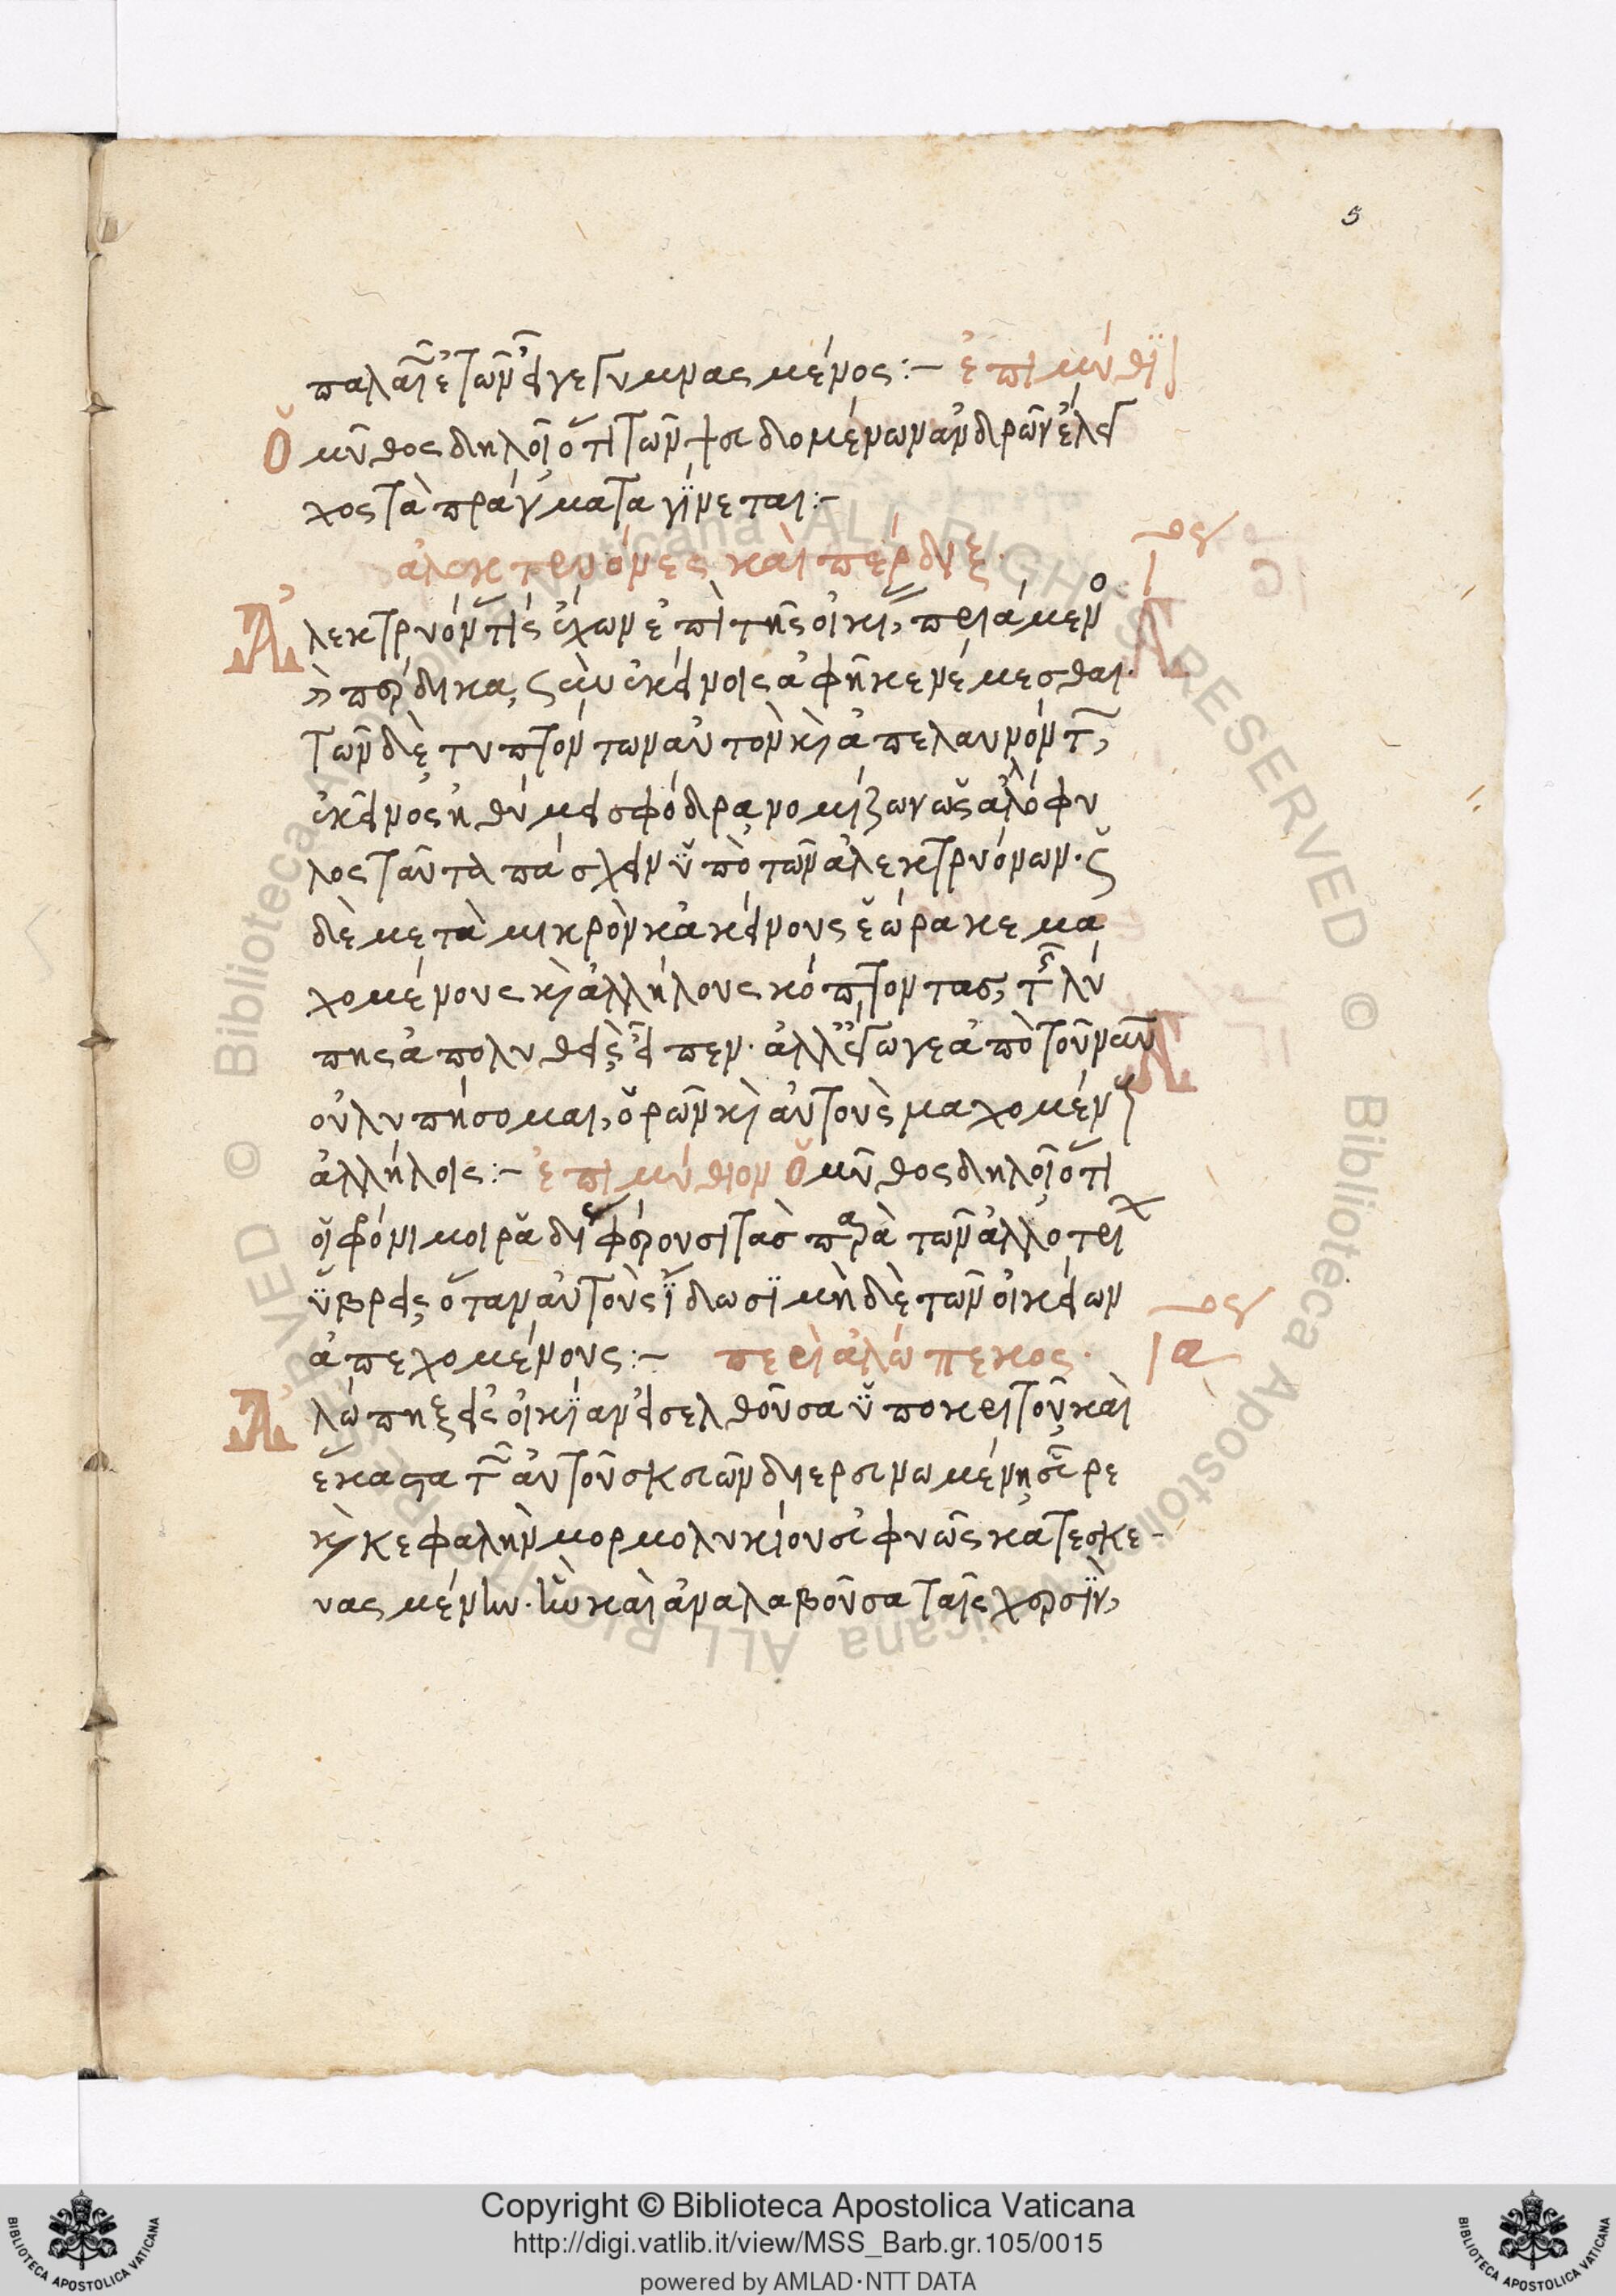 5
παλαιῶν ἐτῶν εἶ γεγυμνασμένος:– ἐπιμύθιον
Ὁ μῦθος δηλοῖ ὅτι τῶν ψευδομένων ἀνδρῶν ἔλεγ
χος τὰ πράγματα γίνεται:–
ἀλεκτρυόνες καὶ πέρδιξ.
Ἀλεκτρυόνάς τις ἔχων ἐπὶ τῆς οἰκίας, πριάμενος
καὶ πέρδικα, σὺν ἐκείνοις ἀφῆκε νέμεσθαι.
τῶν δὲ τυπτόντων αὐτὸν καὶ ἀπελαυνόντων,
ἐκεῖνος ἠθύμει σφόδρα νομίζων ὡς ἀλλόφυ
λος ταῦτα πάσχειν ὑπὸ τῶν ἀλεκτρυόνων. ὡς
δὲ μετὰ μικρὸν κἀκείνους ἑώρακε μα
χομένους καὶ ἀλλήλους κόπτοντας, τῆς λύ
πης ἀπολυθεὶς εἶπεν. ἀλλ' ἔγωγε ἀπὸ τοῦ νῦν
οὐ λυπήσομαι, ὁρῶν καὶ αὐτοὺς μαχομένους
ἀλλήλοις:– ἐπιμύθιον Ὁ μῦθος δηλοῖ ὅτι
οἱ φρόνιμοι ῥᾳδίως φέρουσι τὰς παρὰ τῶν ἀλλοτρίων
ὕβρεις, ὅταν αὐτοὺς ἴδωσι μηδὲ τῶν οἰκείων
ἀπεχομένους:– περὶ ἀλώπεκος.
ια
Ἀλώπηξ εἰς οἰκίαν εἰσελθοῦσα ὑποκριτοῦ, καὶ
ἕκαστα τῶν αὐτοῦ σκευῶν διερευνωμένη, εὗρε
καὶ κεφαλὴν μορμολυκίου εὐφυῶς κατεσκε-
υασμένην. ἣν καὶ ἀναλαβοῦσα ταῖς χερσὶν,
Copyright © Biblioteca Apostolica Vaticana
http://digi.vatlib.it/view/MSS_Barb.gr.105/0015
powered by AMLAD·NTT DATA